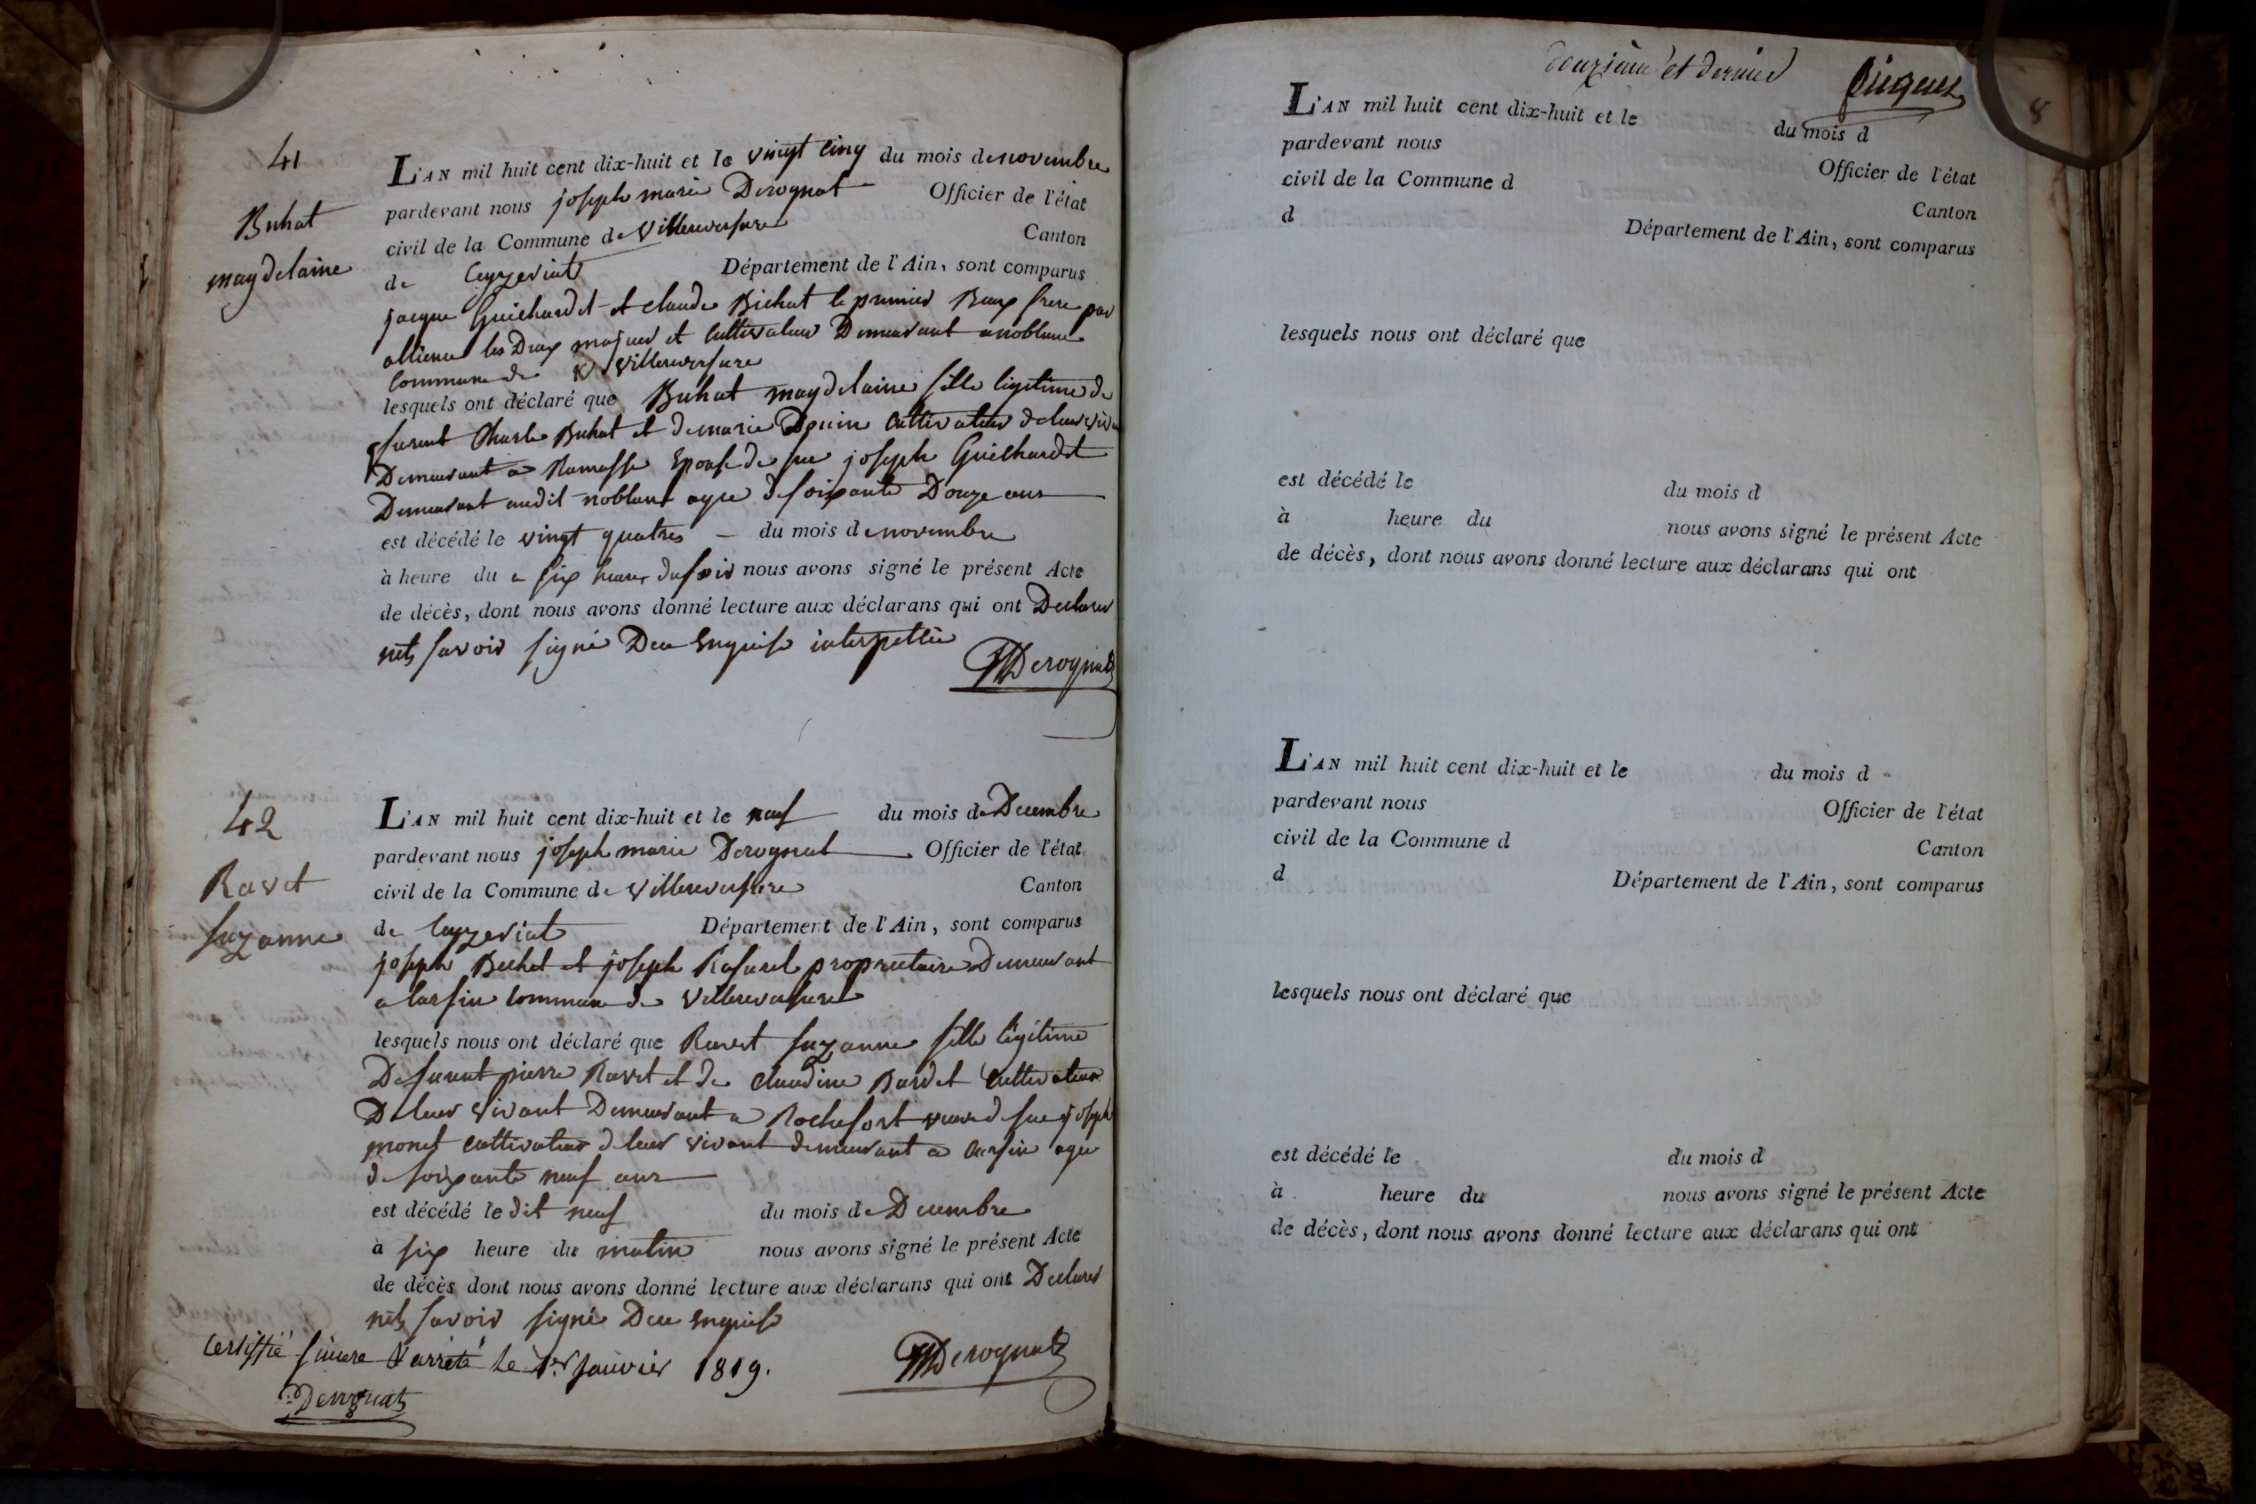 41
Buhat
magdelaine
L'AN mil huit cent dix-huit et le vingt cinq du mois de novembre
pardevant nous joseph marie Derognat Officier de l'état
civil de la Commune de Villereversure Canton
de Ceyzeriat Département de l'Ain, sont comparus
jacque Guichardet et claude Bichat le premier Beaux frere par
allience les Deux majeur et Cultivateur Demeurant a noblane
Commune de Villereversure
lesquels ont déclaré que Buhat magdelaine fille legitime de
furent Charle Buhat et de marie cultivateur de leur vivan
Demeurant a Ramasse Epouse de feu joseph Guichardet
Demeurant audit noblane agee de soixante Douze ans
est décédé le vingt quatres du mois de novembre
à heure du a six heures du soir nous avons signé le présent Acte
de décès, dont nous avons donné lecture aux déclarans qui ont Declarer
savoir signé Dece Enquise interpellée
JMDerognat
42
Ravet
suzanne
L'AN mil huit cent dix-huit et le neuf du mois de Decembre
pardevant nous joseph marie Derognat Officier de l'état
civil de la Commune de Villereversure Canton
de Ceyzeriat Département de l'Ain, sont comparus
joseph Bechet et joseph Rafurel proprietaire Demeurant
a Commune de Villereversure
lesquels nous ont déclaré que Ravet suzanne fille légitime
De furent pierre Ravet et de claudine Bardet Cultivateur
De leur vivant Demeurant a Rochefort veuve de feu joseph
monet cultivateur de leur vivant demeurant a agee
de soixante neuf ans
est décédé le dit neuf du mois de Decembre
à six heure du matin nous avons signé le présent Acte
de décès dont nous avons donné lecture aux déclarans qui ont Declarer
savoir signé Dece enquise
Certiffié sincere & arrêté Le 1er Janvier 1819.
JMDerognat
Derognat
douzieme et dernier
8
L'AN mil huit cent dix-huit et le du mois d
pardevant nous Officier de l'état
civil de la Commune d Canton
d Département de l'Ain, sont comparus
lesquels nous ont déclaré que
est décédé le du mois d
à heure du nous avons signé le présent Acte
de décès, dont nous avons donné lecture aux déclarans qui ont
L'AN mil huit cent dix-huit et le du mois d
pardevant nous Officier de l'état
civil de la Commune d Canton
d Département de l'Ain, sont comparus
lesquels nous ont déclaré que
est décédé le du mois d
à heure du nous avons signé le présent Acte
de décès, dont nous avons donné lecture aux déclarans qui ont